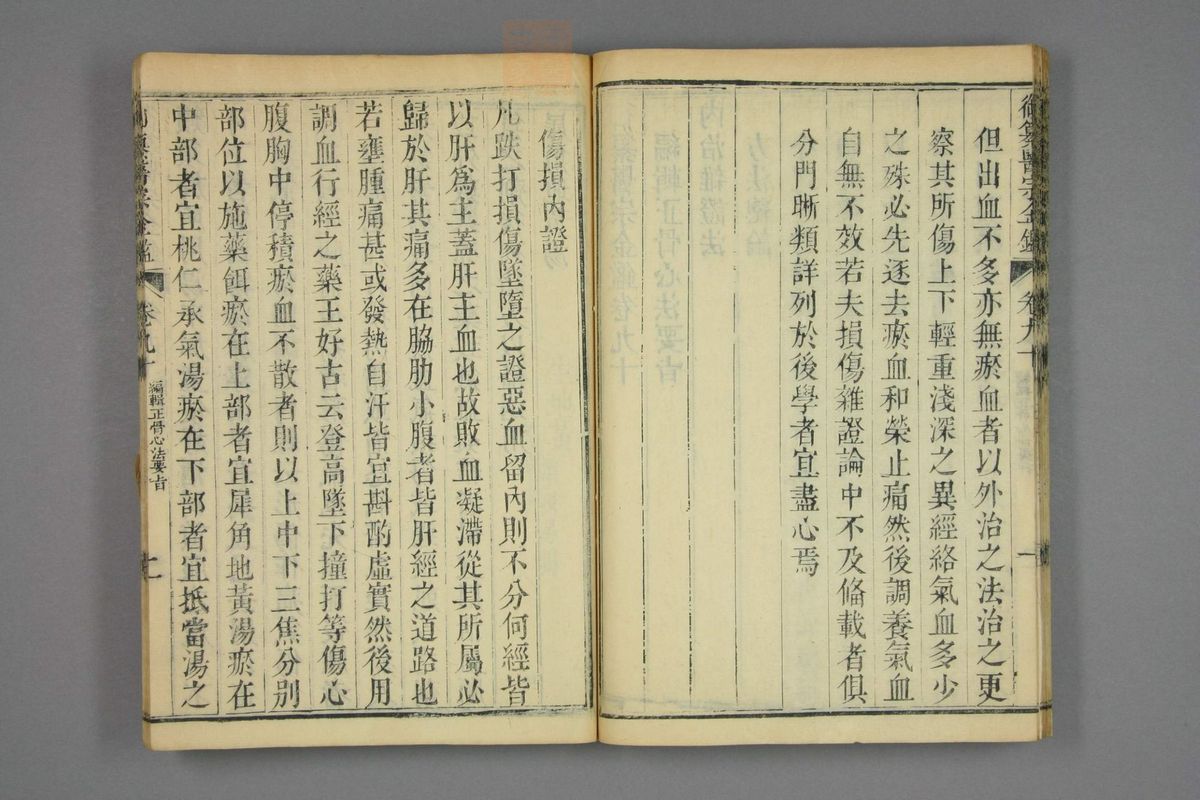 御纂醫宗金鑑 卷九十 一
但出血不多亦無瘀血者以外治之法治之更
察其所傷上下輕重淺深之異經絡氣血多少
之殊必先逐去瘀血和榮止痛然後調養氣血
自無不效若夫損傷雜證論中不及備載者俱
分門晰類詳列於後學者宜盡心焉
傷損內證
凡跌打損傷墜墮之證惡血留內則不分何經皆
以肝爲主蓋肝主血也故敗血凝滯從其所屬必
歸於肝其痛多在脇肋小腹者皆肝經之道路也
若壅腫痛甚或發熱自汗皆宜斟酌虛實然後用
調血行經之藥王好古云登高墜下撞打等傷心
腹胸中停積瘀血不散者則以上中下三焦分別
部位以施藥餌瘀在上部者宜犀角地黃湯瘀在
中部者宜桃仁承氣湯瘀在下部者宜抵當湯之
卷九十 編輯正骨心法要旨 二